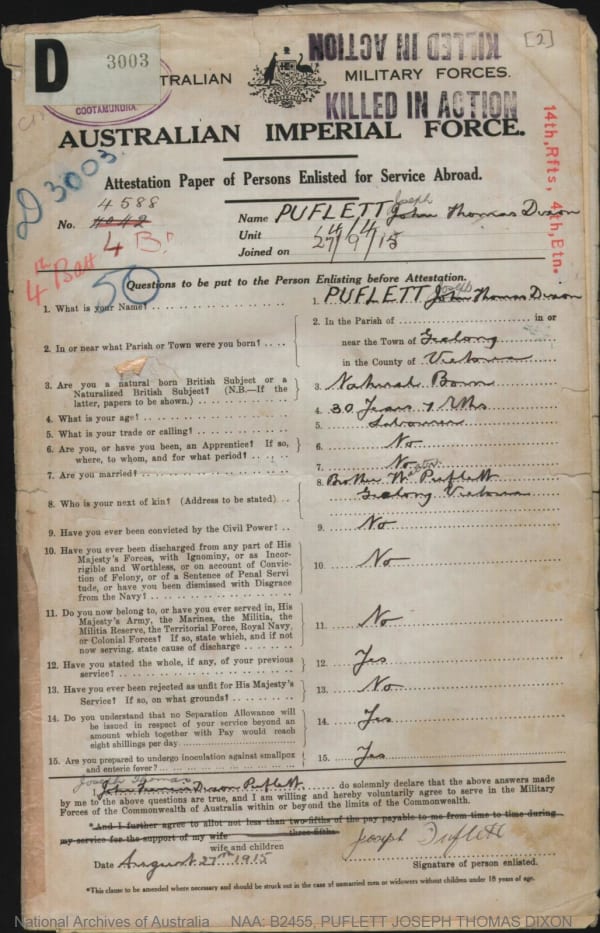 D 3003
COOTAMUNDRA
KILLED IN ACTION
[2]
TRALIAN MILITARY FORCES.
KILLED IN ACTION
AUSTRALIAN IMPERIAL FORCE.
14th, Rfts, 4th, Btn.
D 3003
Attestation Paper of Persons Enlisted for Service Abroad.
4588
No. 4042
4 B
4th Batt
50
Joseph
Name PUFLETT John Thomas Dixon
Unit
Joined on 27/9/15
Questions to be put to the Person Enlisting before Attestation.
1. What is your Name? 1. PUFLETT Joseph John Thomas Dixon
2. In or near what Parish or Town were you born? 2. In the Parish of in or
near the Town of Geelong
in the County of Victoria
3. Are you a natural born British Subject or a
Naturalized British Subject? (N.B.—If the
latter, papers to be shown.) 3. Natural Born
4. What is your age? 4. 30 Years 7 Mths
5. What is your trade or calling? 5. Labourer
6. Are you, or have you been, an Apprentice? If so,
where, to whom, and for what period? 6. No
7. Are you married? 7. No
8. Who is your next of kin? (Address to be stated) 8. Brother W. Puflett
Geelong Victoria
9. Have you ever been convicted by the Civil Power? 9. No
10. Have you ever been discharged from any part of His
Majesty's Forces, with Ignominy, or as Incor-
rigible and Worthless, or on account of Convic-
tion of Felony, or of a Sentence of Penal Servi
tude, or have you been dismissed with Disgrace
from the Navy? 10. No
11. Do you now belong to, or have you ever served in, His
Majesty's Army, the Marines, the Militia, the
Militia Reserve, the Territorial Force, Royal Navy,
or Colonial Forces? If so, state which, and if not
now serving, state cause of discharge 11. No
12. Have you stated the whole, if any, of your previous
service? 12. Yes
13. Have you ever been rejected as unfit for His Majesty's
Service? If so, on what grounds? 13. No
14. Do you understand that no Separation Allowance will
be issued in respect of your service beyond an
amount which together with Pay would reach
eight shillings per day 14. Yes
15. Are you prepared to undergo inoculation against smallpox
and enteric fever? 15. Yes
Joseph Thomas
I, Dixon Puflett do solemnly declare that the above answers made
by me to the above questions are true, and I am willing and hereby voluntarily agree to serve in the Military
Forces of the Commonwealth of Australia within or beyond the limits of the Commonwealth.
*And I further agree to allot not less than two-fifths of the pay payable to me from time to time during
my service for the support of my wife three-fifths
wife and children
Joseph Puflett
Date August 27th 1915 Signature of person enlisted.
*This clause to be amended where necessary and should be struck out in the case of unmarried men or widowers without children under 18 years of age.
National Archives of Australia NAA: B2455, PUFLETT JOSEPH THOMAS DIXON